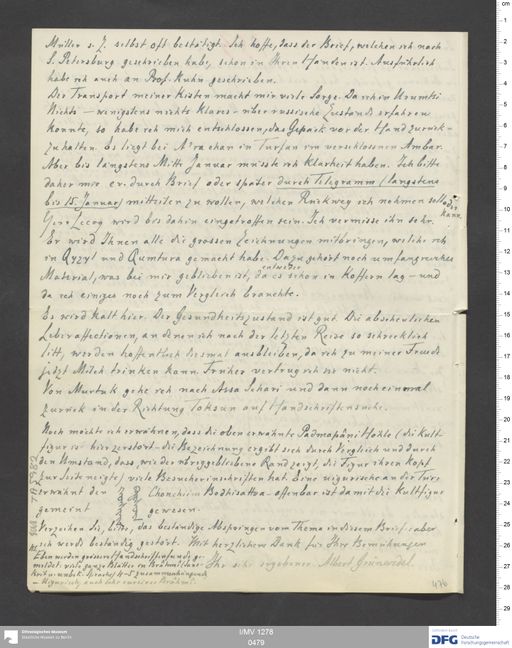 Müller s. Z. selbst oft bestätigt. Ich hoffe, dass der Brief, welchen ich nach
S. Petersburg geschrieben habe, schon in Ihren Händen ist. Ausführlich
habe ich auch an Prof. Kuhn geschrieben.
Der Transport meiner Kisten macht mir viele Sorge. Da ich in Urumtsi
Nichts – wenigstens nichts Klares – über russische Zustände erfahren
konnte, so habe ich mich entschlossen, das Gepäck vor der Hand zurück-
zuhalten. Es liegt bei in Turfan im verschlossenen Ambar.
Aber bis längstens Mitte Januar müsste ich Klarheit haben. Ich bitte
daher mir ev. durch Brief oder später durch Telegramm (längstens
bis 15. Januar) mitteilen zu wollen, welchen Rückweg ich nehmen soll oder
kann.
Herr Lecoq wird bis dahin eingetroffen sein. Ich vermisse ihn sehr.
Er wird Ihnen alle die grossen Zeichnungen mitbringen, welche ich
in Qyzyl und Qumtura gemacht habe. Dazu gehört noch umfangreiches
Material, was bei mir geblieben ist, da es entweder schon in Koffern lag – und
da ich einiges noch zum Vergleich brauchte.
Es wird kalt hier. Der Gesundheitszustand ist gut. Die abscheulichen
Leberaffectionen, an denen ich nach der letzten Reise so schrecklich
litt, werden hoffentlich diesmal ausbleiben, da ich zu meiner Freude
jetzt Milch trinken kann. Früher vertrug ich sie nicht.
Von Murtuk gehe ich nach Assa Schari und dann noch einmal
zurück in der Richtung Toksun auf Handschriftensuche.
Noch möchte ich erwähnen, dass die oben erwähnte Padmapâni-Höhle (die Kult-
figur ist hier zerstört – die Bezeichnung ergibt sich durch Vergleich und durch
den Umstand, dass, wie der übriggebliebene Rand zeigt, die Figur ihren Kopf
zur Seite neigte) viele Besucherinschriften hat. Eine uigurische an der Türe
erwähnt den Bodhisattva – offenbar ist damit die Kultfigur
gemeint gewesen.
Verzeihen Sie, bitte, das beständige Abspringen vom Thema in diesem Brief: aber
ich werde beständig gestört. Mit herzlichem Dank für Ihre Bemühungen
Ihr sehr ergebener Albert Grünwedel.
NB.
Eben werden grosse Handschriftenfunde ge-
meldet: viele ganze Blätter in Brâhmî: Sans-
krit u. unbek. Sprache, 4–5 zusammenhängend
– Uigurisch, auch sehr cursives Brâhmî.
476
I/MV 1278
0479
Ethnologisches Museum
Staatliche Museen zu Berlin
DFG
Deutsche
Forschungsgemeinschaft
cm
1
2
3
4
5
6
7
8
9
10
11
12
13
14
15
16
17
18
19
20
21
22
23
24
25
26
27
28
29